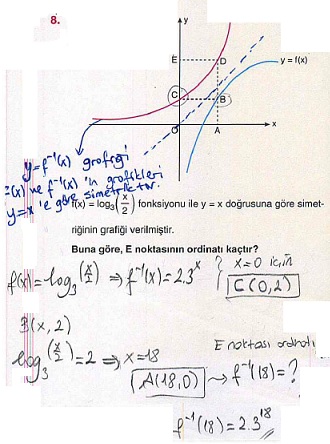 8.
y
E
D
y = f(x)
C
B
O
A
x
y=f⁻¹(x) grafiği
f(x) ve f⁻¹(x) 'in grafikleri
y=x 'e göre simetriktir.
f(x) = log₃(x/2) fonksiyonu ile y = x doğrusuna göre simet-
riğinin grafiği verilmiştir.
Buna göre, E noktasının ordinatı kaçtır?
f(x)=log₃(x/2) ⇒ f⁻¹(x)=2.3ˣ
x=0 için
C(0,2)
B(x,2)
log₃(x/2)=2 ⇒ x=18
A(18,0)
E noktası ordinatı
→ f⁻¹(18)=?
f⁻¹(18)=2.3¹⁸